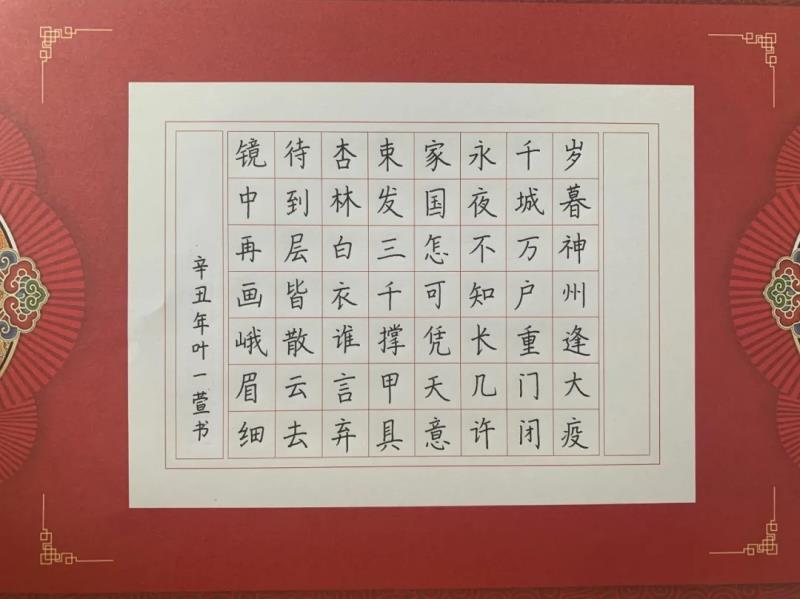 岁暮神州逢大疫
千城万户重门闭
永夜不知长几许
家国怎可凭天意
束发三千撑甲具
杏林白衣谁言弃
待到层皆散云去
镜中再画峨眉细
辛丑年叶一萱书